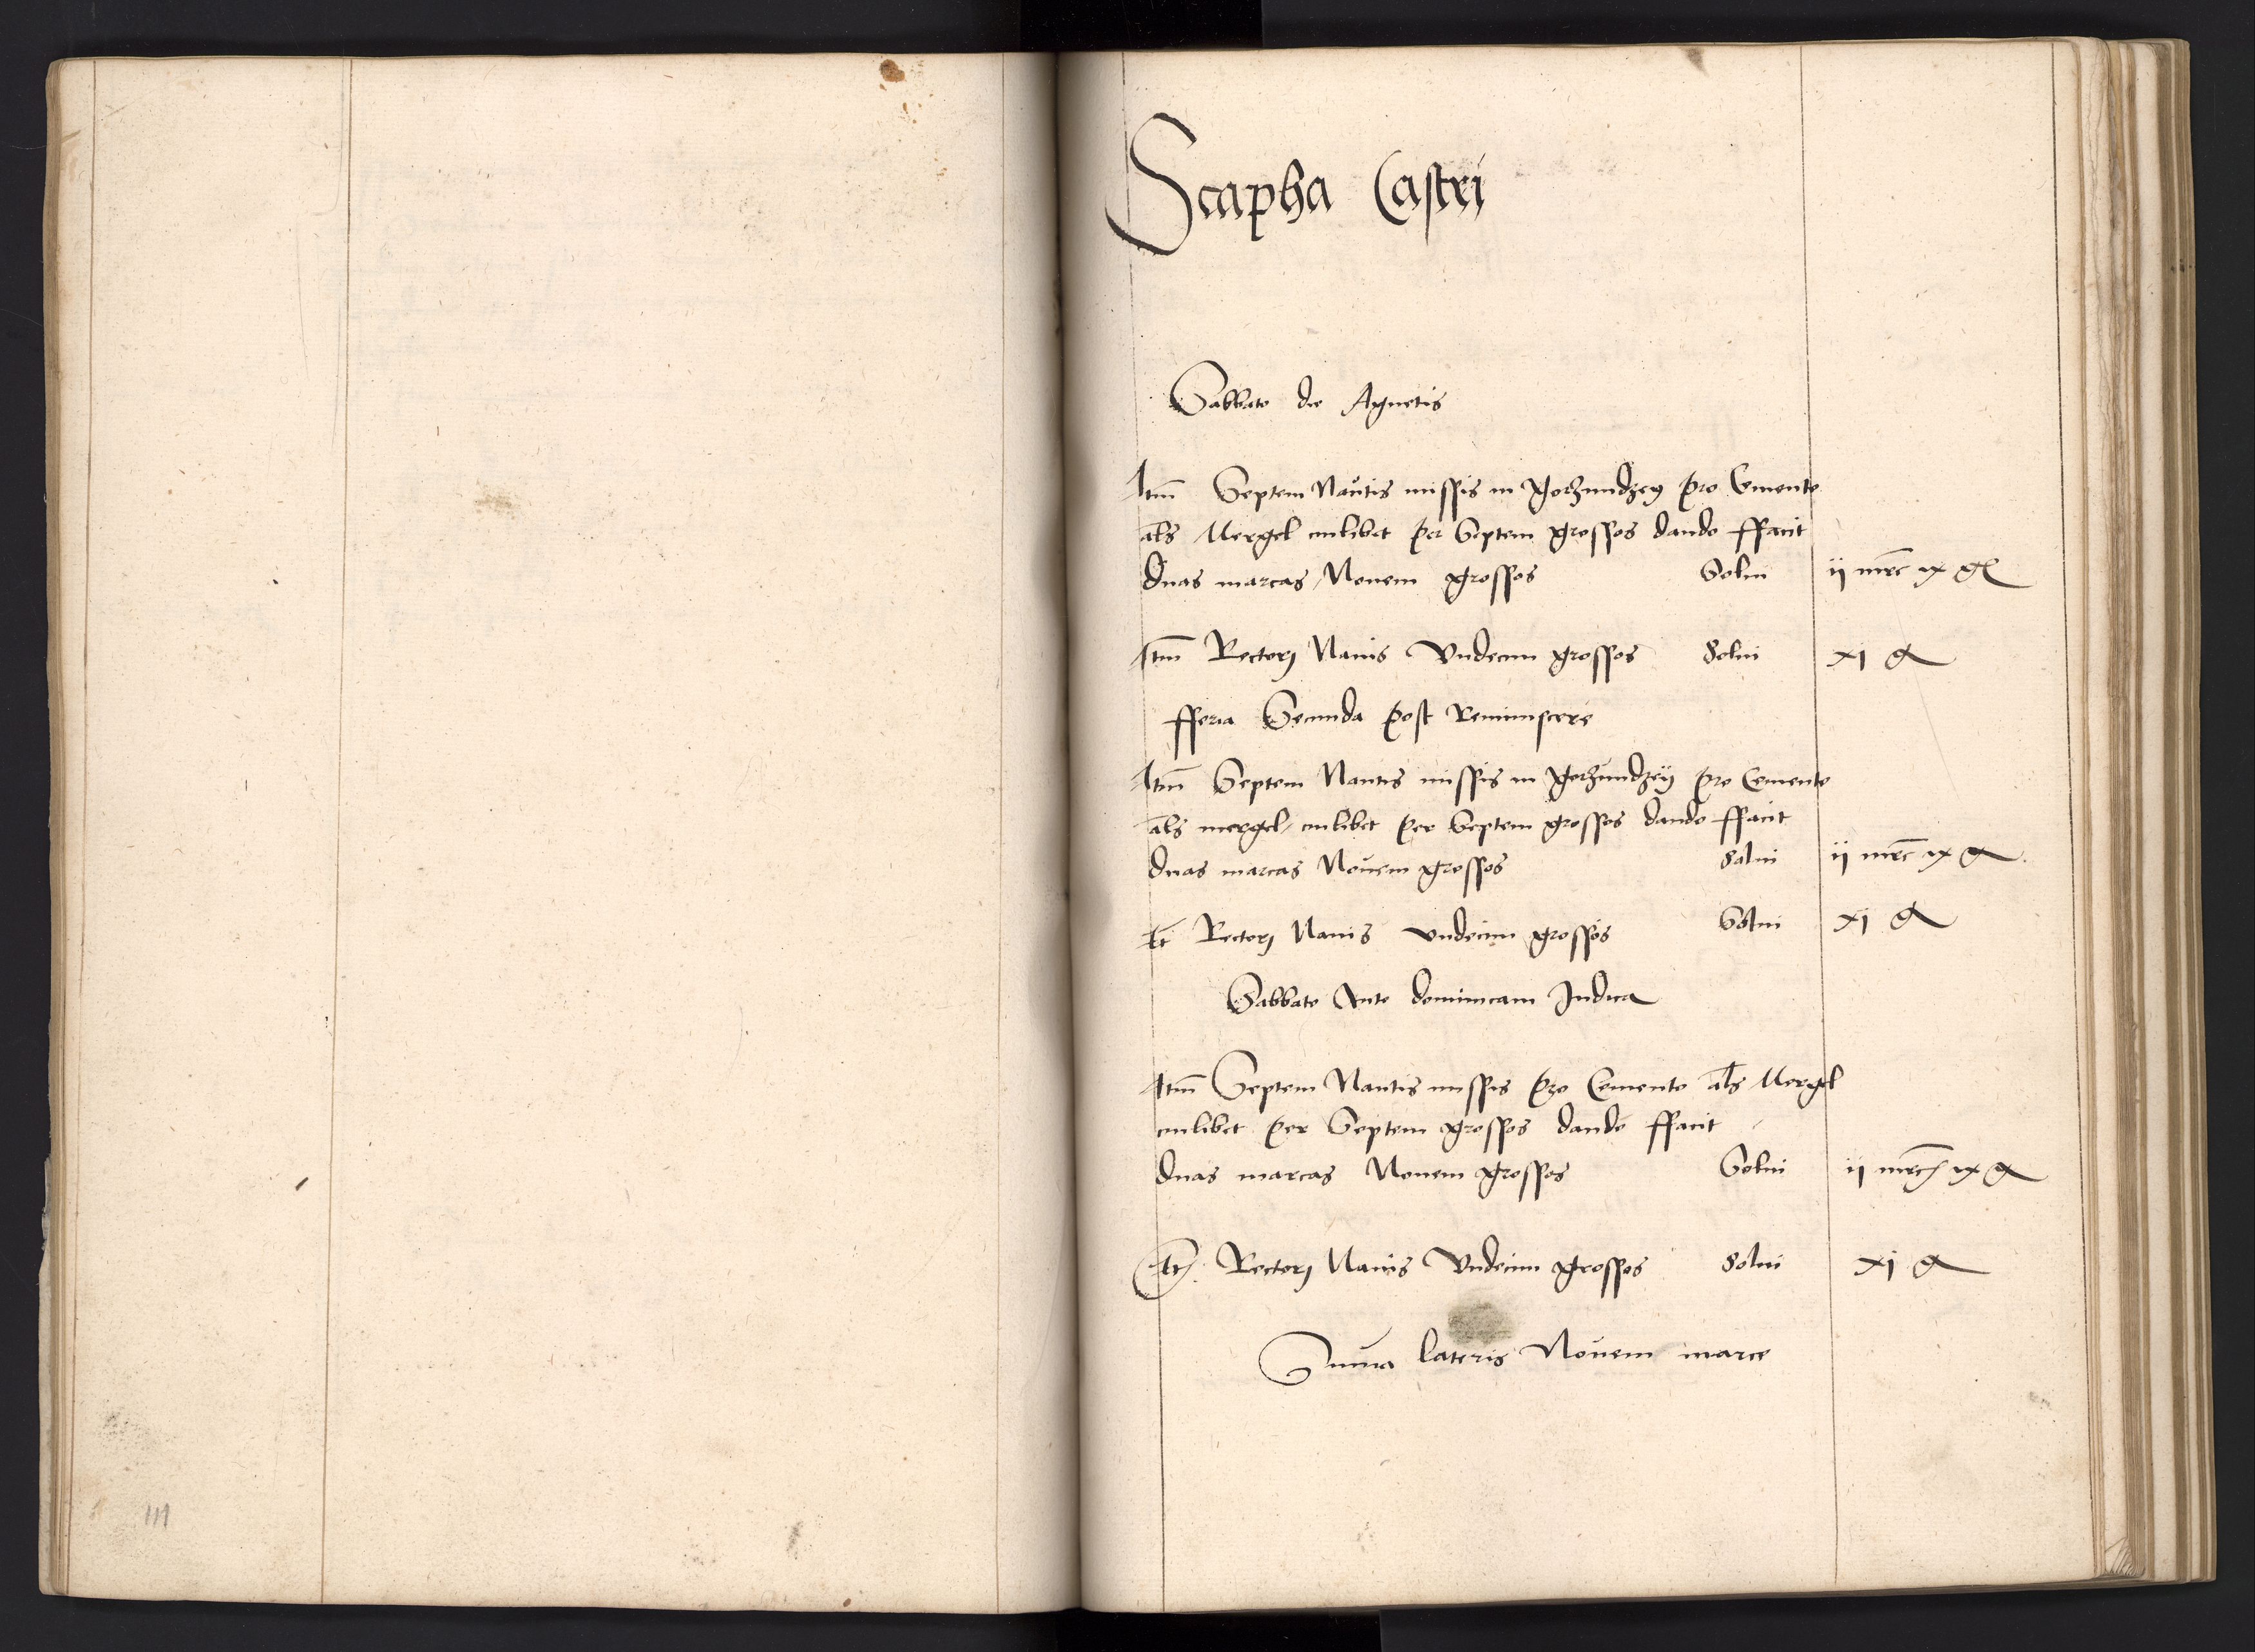 Scapha Castri
Sabbato die Agnetis
Itm Septem Nautis missis in pro Cemento
als Mergel cuilibet per Septem grossos dando ffacit
duas marcas Novem grossos Solvi ij mrc ix gr
Itm Rectori Navis Undecim grossos Solvi xj gr
fferia Secunda post Reminiscere
Itm Septem Nautis missis in pro Cemento
als mergel cuilibet per Septem grossos dando ffacit
duas marcas Novem grossos Solvi ij mrc ix gr
It Rectori Navis undecim grossos Solvi xj gr
Sabbato Ante dominicam Judica
Itm Septem Nautis missis pro Cemento als Mergel
cuilibet per Septem grossos dando ffacit
duas marcas Novem grossos Solvi ij mrc ix gr
It Rectori Navis Undecim grossos Solvi xj gr
Suma lateris Novem marce
111